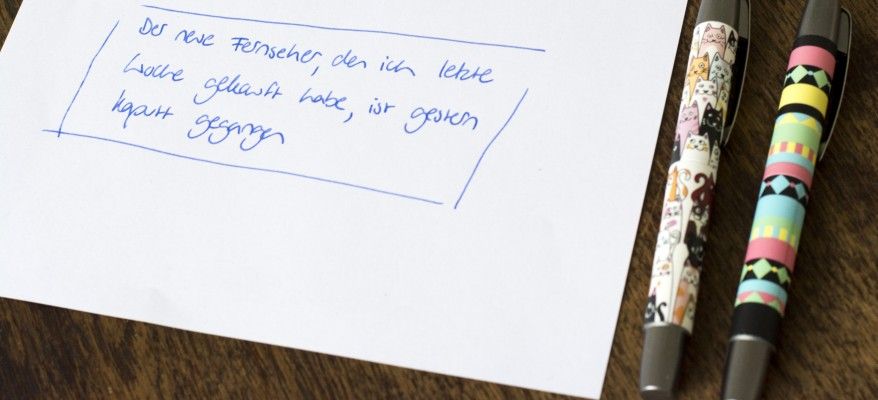 Der neue Fernseher, den ich letzte
Woche gekauft habe, ist gestern
kaputt gegangen